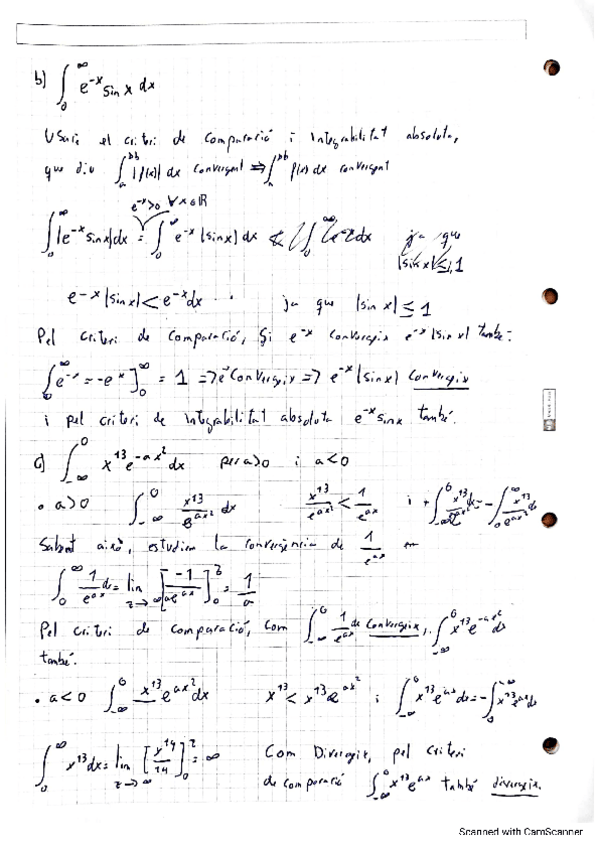 b) ∫₀^∞ e^-x sin x dx
Usaré el criteri de comparació i integrabilitat absoluta,
que diu ∫ₐ^b |f(x)| dx convergent ⇒ ∫ₐ^b f(x) dx convergent
e^-x>0 ∀x∈ℝ
∫₀^∞ |e^-x sin x| dx = ∫₀^∞ e^-x |sin x| dx ja que
|sin x| ≤ 1
e^-x |sin x| < e^-x dx ja que |sin x| ≤ 1
Pel criteri de comparació, si e^-x convergix e^-x |sin x| també:
∫₀^∞ e^-x = -e^-x]₀^∞ = 1 ⇒ e^-x convergix ⇒ e^-x |sin x| convergix
i pel criteri de integrabilitat absoluta e^-x sin x també.
c) ∫_-∞^0 x^13 e^-ax² dx per a>0 i a<0
• a>0 ∫_-∞^0 x^13/e^ax² dx x^13/e^ax² < 1/e^ax i
Sabent això, estudiem la convergència de 1/e^ax en
∫₀^∞ 1/e^ax dx = lim z→∞ [-1/ae^ax]₀^z = 1/a
Pel criteri de comparació, com ∫_-∞^0 1/e^ax dx convergix, ∫_-∞^0 x^13 e^-ax² dx
també.
• a<0 ∫_-∞^0 x^13 e^ax² dx x^13 < x^13 e^ax² i
∫₀^∞ x^13 dx = lim z→∞ [x^14/14]₀^z = ∞ Com Divergix, pel criteri
de comparació ∫_-∞^0 x^13 e^ax també divergix.
Scanned with CamScanner